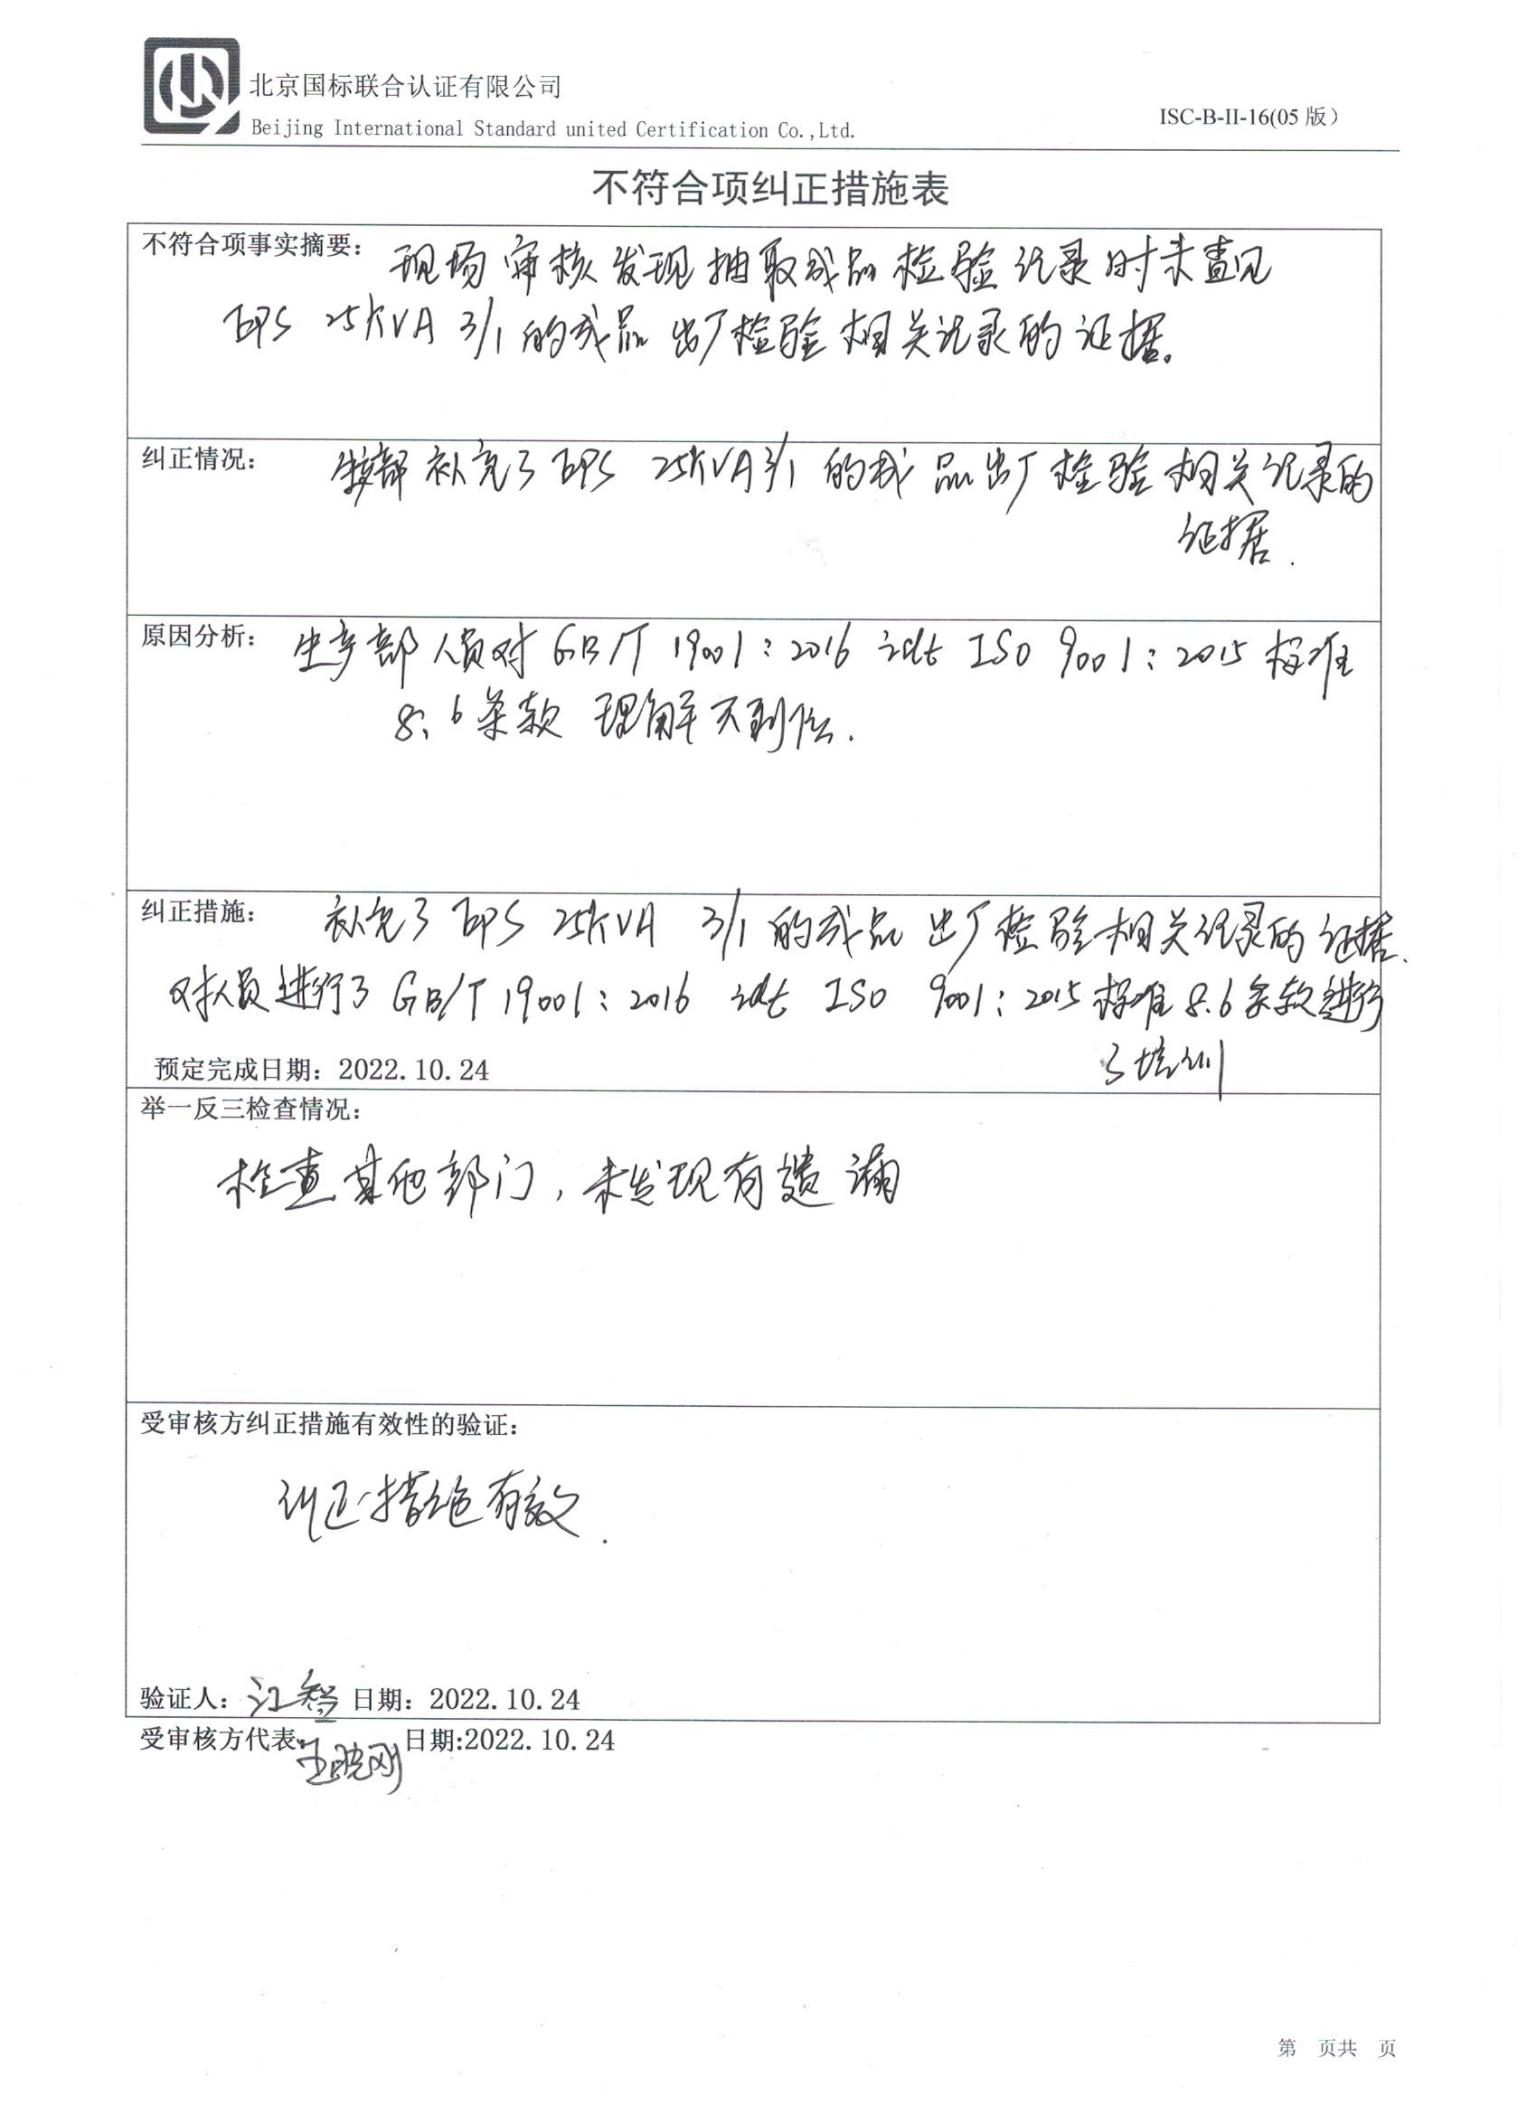 北京国标联合认证有限公司
Beijing International Standard united Certification Co.,Ltd.
ISC-B-II-16(05 版)
不符合项纠正措施表
不符合项事实摘要: 现场审核发现抽取成品检验记录时未查见
EPS 25KVA 3/1 的成品出厂检验相关记录的证据。
纠正情况: 生产部补充了 EPS 25KVA 3/1 的成品出厂检验相关记录的
证据.
原因分析: 生产部人员对 GB/T 19001:2016 idt ISO 9001:2015 标准
8.6条款理解不到位.
纠正措施: 补充了 EPS 25KVA 3/1 的成品出厂检验相关记录的证据.
对人员进行了 GB/T 19001:2016 idt ISO 9001:2015 标准 8.6条款进行
了培训
预定完成日期: 2022.10.24
举一反三检查情况:
检查其他部门,未发现有遗漏
受审核方纠正措施有效性的验证:
纠正措施有效.
验证人: 江智 日期: 2022.10.24
受审核方代表: 王晓刚 日期:2022.10.24
第 页共 页